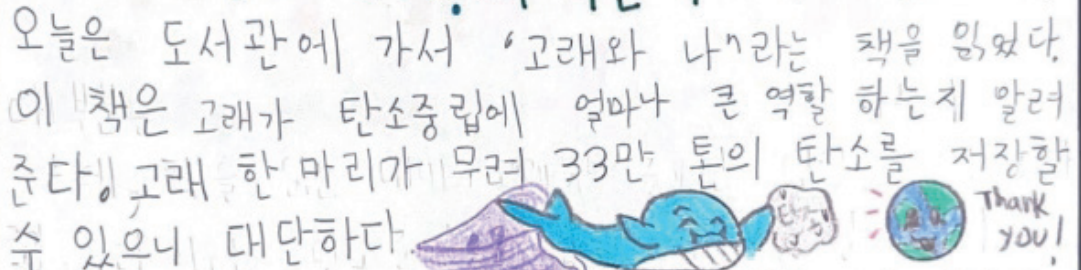 오늘은 도서관에 가서 '고래와 나"라는 책을 읽었다.
이 책은 고래가 탄소중립에 얼마나 큰 역할 하는지 알려
준다. 고래 한 마리가 무려 33만 톤의 탄소를 저장할
수 있으니 대단하다.
탄소
Thank
you!